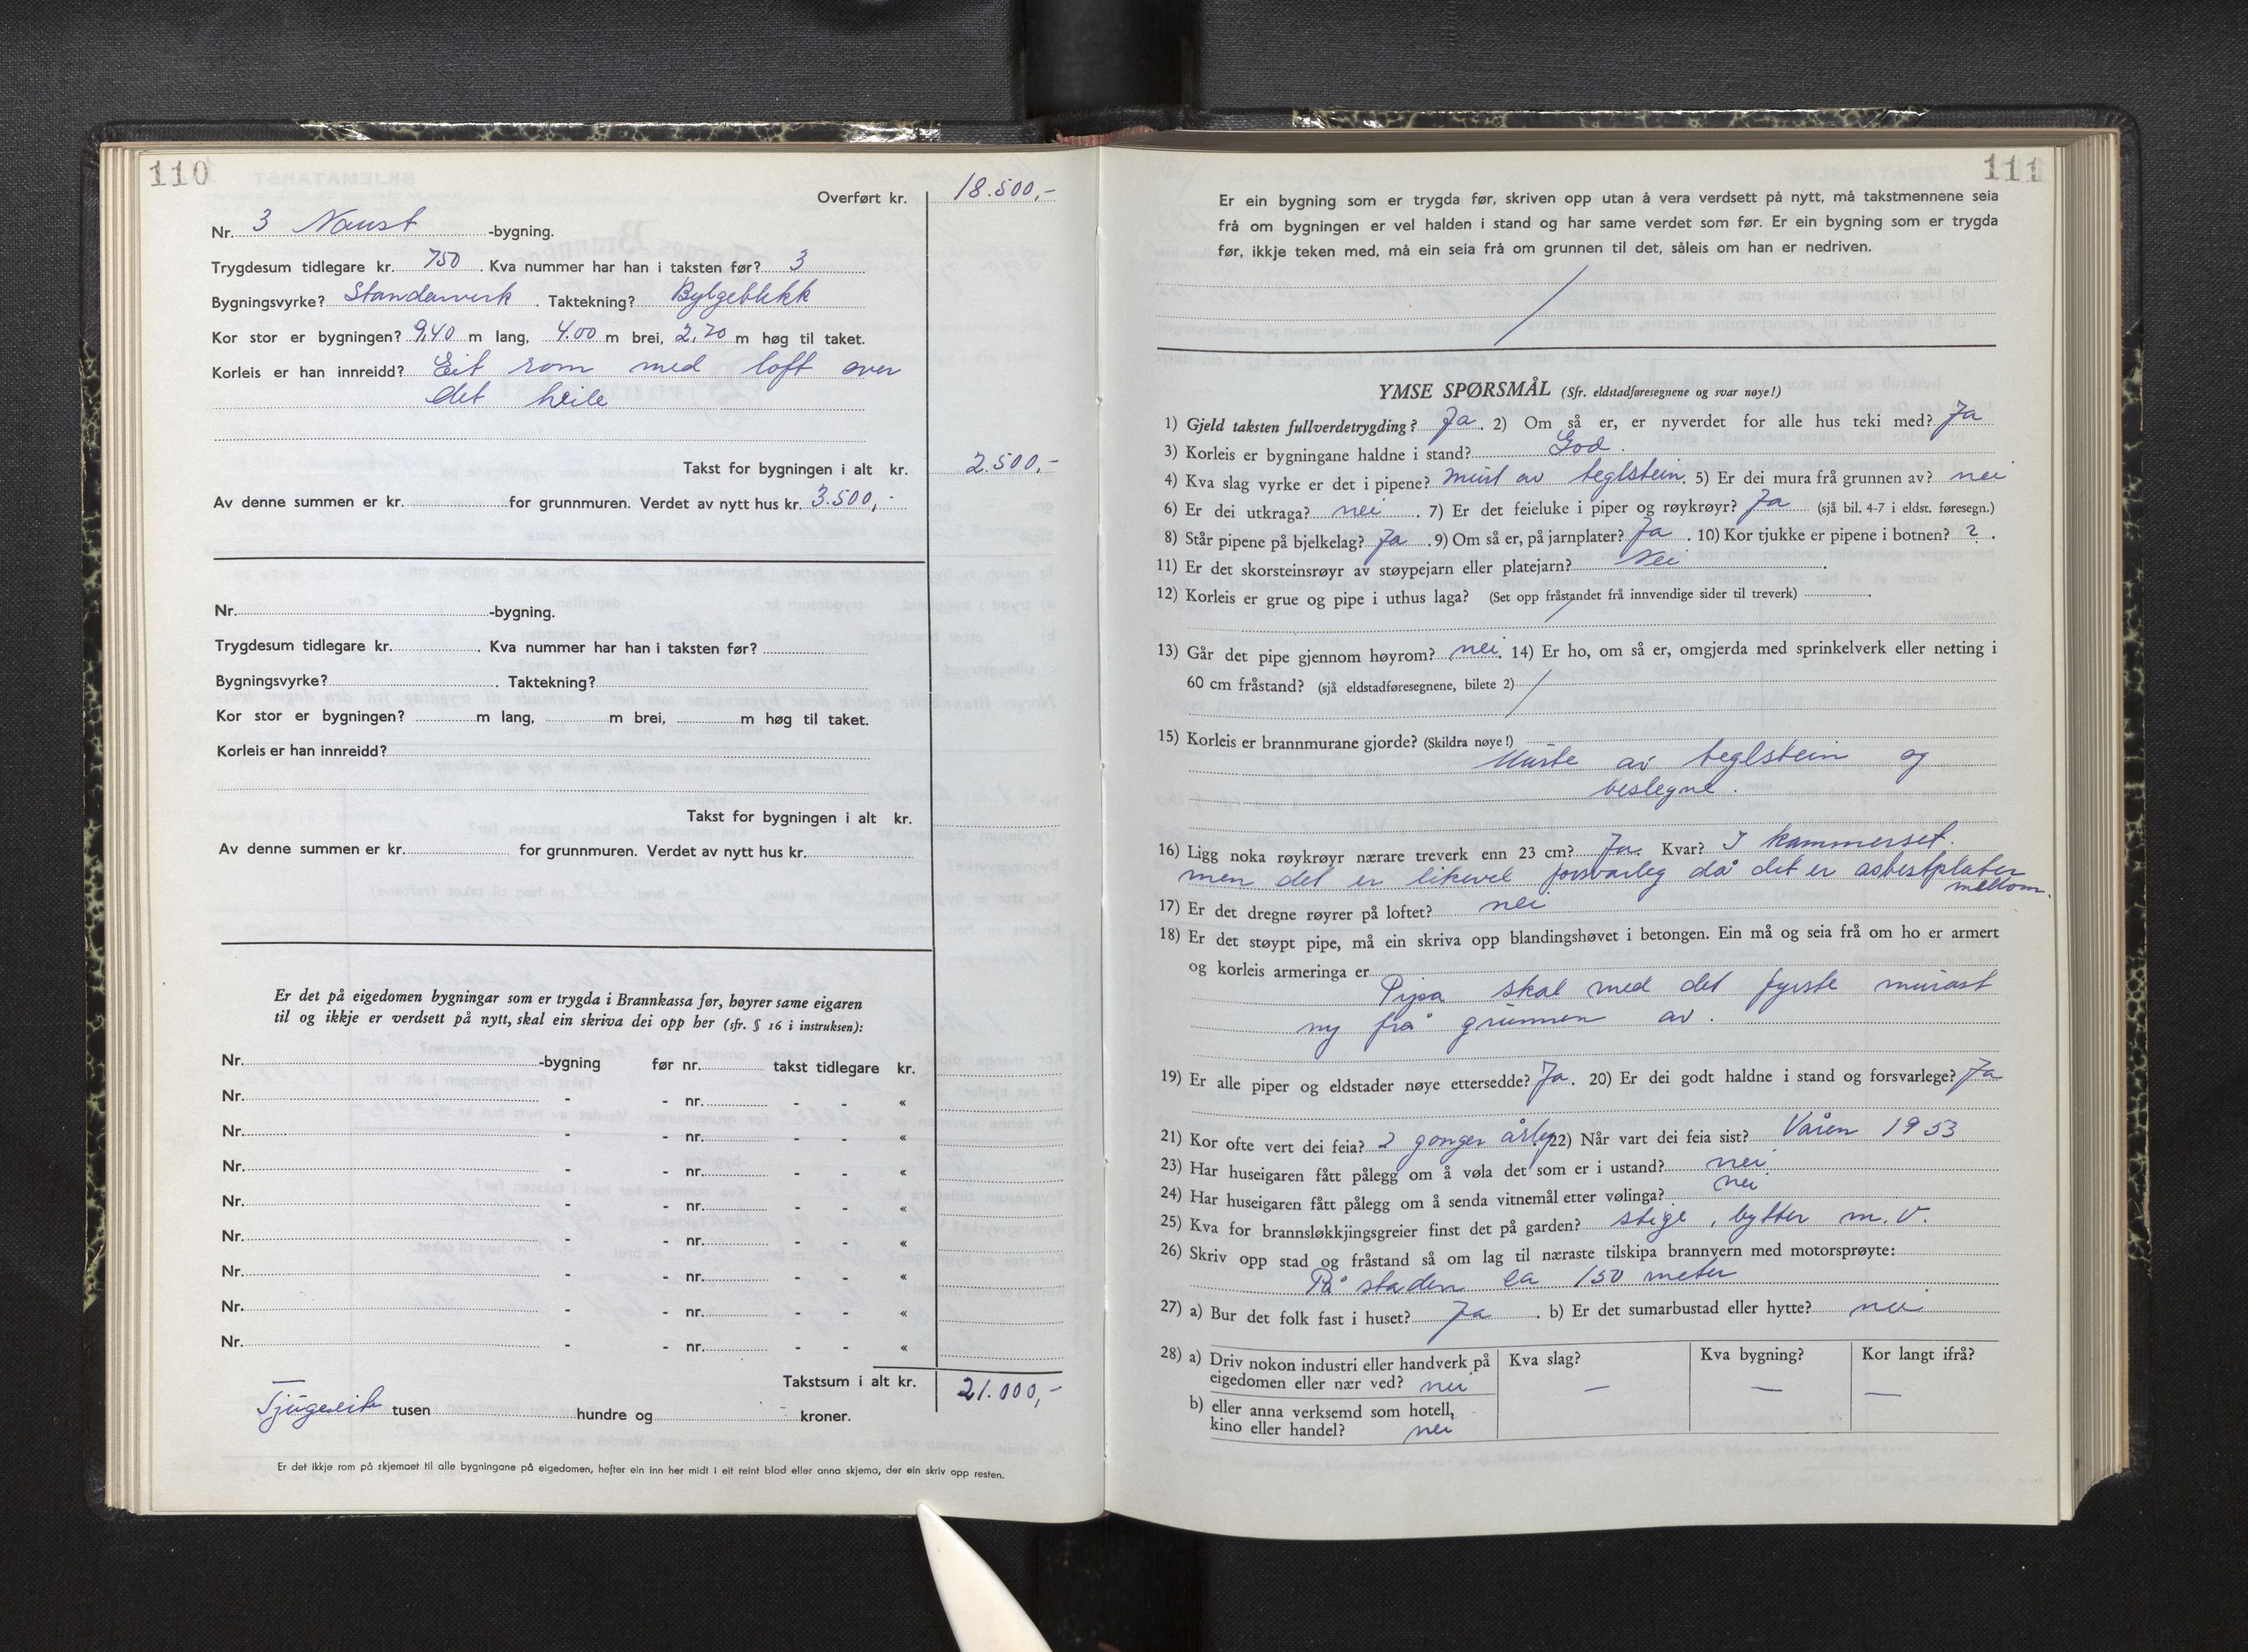 110
Overført kr. 18.500,-
Nr. 3 Naust -bygning.
Trygdesum tidlegare kr. 750 . Kva nummer har han i taksten før? 3
Bygningsvyrke? Standarverk . Taktekning? Bylgeblekk
Kor stor er bygningen? 9,40 m lang, 4.00 m brei, 2,70 m høg til taket.
Korleis er han innreidd? Eit rom med loft over
det heile
Takst for bygningen i alt kr. 2.500,-
Av denne summen er kr. for grunnmuren. Verdet av nytt hus kr. 3.500,-
Nr. -bygning.
Trygdesum tidlegare kr. . Kva nummer har han i taksten før?
Bygningsvyrke? . Taktekning?
Kor stor er bygningen? m lang, m brei, m høg til taket.
Korleis er han innreidd?
Takst for bygningen i alt kr.
Av denne summen er kr. for grunnmuren. Verdet av nytt hus kr.
Er det på eigedomen bygningar som er trygda i Brannkassa før, høyrer same eigaren
til og ikkje er verdsett på nytt, skal ein skriva dei opp her (sfr. § 16 i instruksen):
Nr. -bygning før nr. takst tidlegare kr.
Nr. - - nr. - - «
Nr. - - nr. - - «
Nr. - - nr. - - «
Nr. - - nr. - - «
Nr. - - nr. - - «
Nr. - - nr. - - «
Nr. - - nr. - - «
Nr. - - nr. - - «
Takstsum i alt kr. 21.000,-
Tjugoeitt tusen hundre og - kroner.
Er det ikkje rom på skjemaet til alle bygningane på eigedomen, hefter ein inn her midt i eit reint blad eller anna skjema, der ein skriv opp resten.
111
Er ein bygning som er trygda før, skriven opp utan å vera verdsett på nytt, må takstmennene seia
frå om bygningen er vel halden i stand og har same verdet som før. Er ein bygning som er trygda
før, ikkje teken med, må ein seia frå om grunnen til det, såleis om han er nedriven.
/
YMSE SPØRSMÅL (Sfr. eldstadføresegnene og svar nøye!)
1) Gjeld taksten fullverdetrygding? Ja . 2) Om så er, er nyverdet for alle hus teki med? Ja
3) Korleis er bygningane haldne i stand? God .
4) Kva slag vyrke er det i pipene? Murt av teglstein. 5) Er dei mura frå grunnen av? nei
6) Er dei utkraga? nei . 7) Er det feieluke i piper og røykrøyr? Ja (sjå bil. 4-7 i eldst. føresegn.)
8) Står pipene på bjelkelag? Ja . 9) Om så er, på jarnplater? Ja . 10) Kor tjukke er pipene i botnen? ? .
11) Er det skorsteinsrøyr av støypejarn eller platejarn? Nei .
12) Korleis er grue og pipe i uthus laga? (Set opp fråstandet frå innvendige sider til treverk) .
/
13) Går det pipe gjennom høyrom? nei. 14) Er ho, om så er, omgjerda med sprinkelverk eller netting i
60 cm fråstand? (sjå eldstadføresegnene, bilete 2) /
15) Korleis er brannmurane gjorde? (Skildra nøye!)
Murte av teglstein og
beslegne.
16) Ligg noka røykrøyr nærare treverk enn 23 cm? Ja. Kvar? I kammerset.
men det er likevel forsvarleg då det er asbestplater
mellom.
17) Er det dregne røyrer på loftet? nei
18) Er det støypt pipe, må ein skriva opp blandingshøvet i betongen. Ein må og seia frå om ho er armert
og korleis armeringa er
Pipa skal med det fyrste murast
ny frå grunnen av.
19) Er alle piper og eldstader nøye ettersedde? Ja. 20) Er dei godt haldne i stand og forsvarlege? Ja
21) Kor ofte vert dei feia? 2 gonger årleg 22) Når vart dei feia sist? Våren 1953
23) Har huseigaren fått pålegg om å vøla det som er i ustand? nei
24) Har huseigaren fått pålegg om å senda vitnemål etter vølinga? nei
25) Kva for brannsløkkjingsgreier finst det på garden? stige, bytter m.v.
26) Skriv opp stad og fråstand så om lag til næraste tilskipa brannvern med motorsprøyte:
På staden ca 150 meter
27) a) Bur det folk fast i huset? Ja . b) Er det sumarbustad eller hytte? nei
28) a) Driv nokon industri eller handverk på Kva slag? Kva bygning? Kor langt ifrå?
eigedomen eller nær ved? nei — — —
b) eller anna verksemd som hotell,
kino eller handel? nei